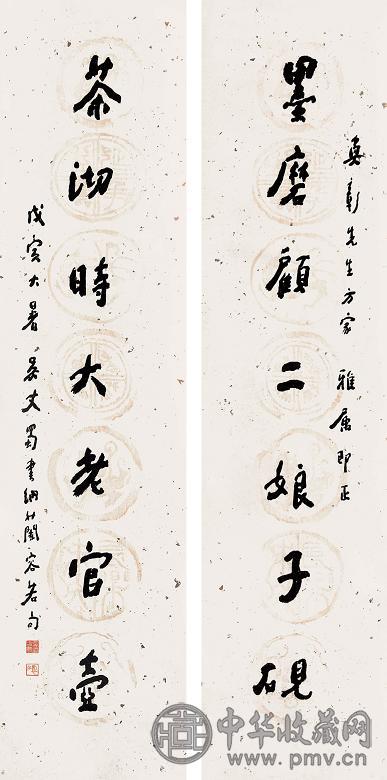 彰先生方家 雅属即正
墨磨顧二娘子硯
茶沏時大老官壺
戊寅大暑 吴丈蜀書纳蘭容若句
中华收藏网
www.pmv.cn